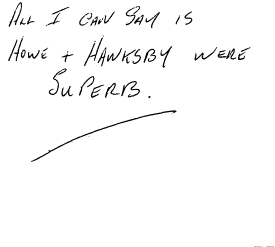 ALL I CAN SAY IS
HOWE + HAWKSBY WERE
SUPERB.